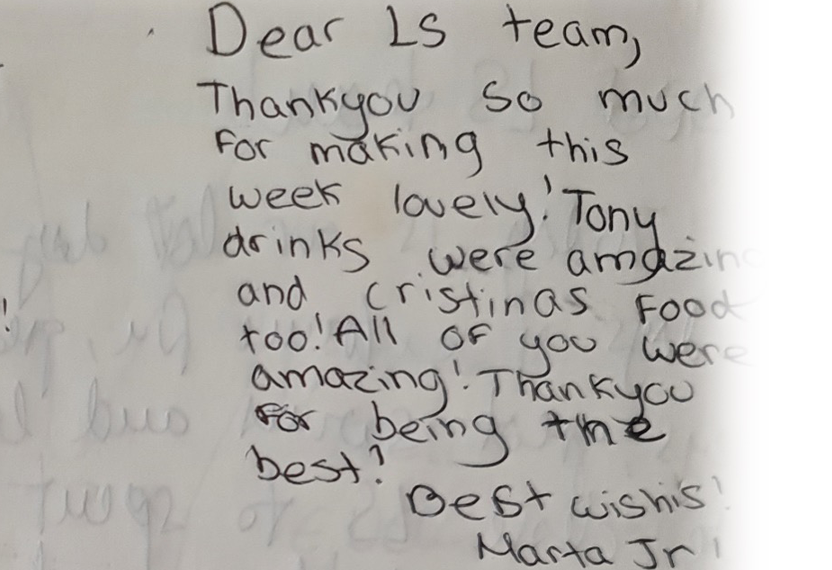 Dear LS team,
Thankyou so much
For making this
week lovely! Tony
drinks were amazing
and cristinas Food
too! All OF you were
amazing! Thankyou
For being the
best!
Best wishis!
Marta Jr!